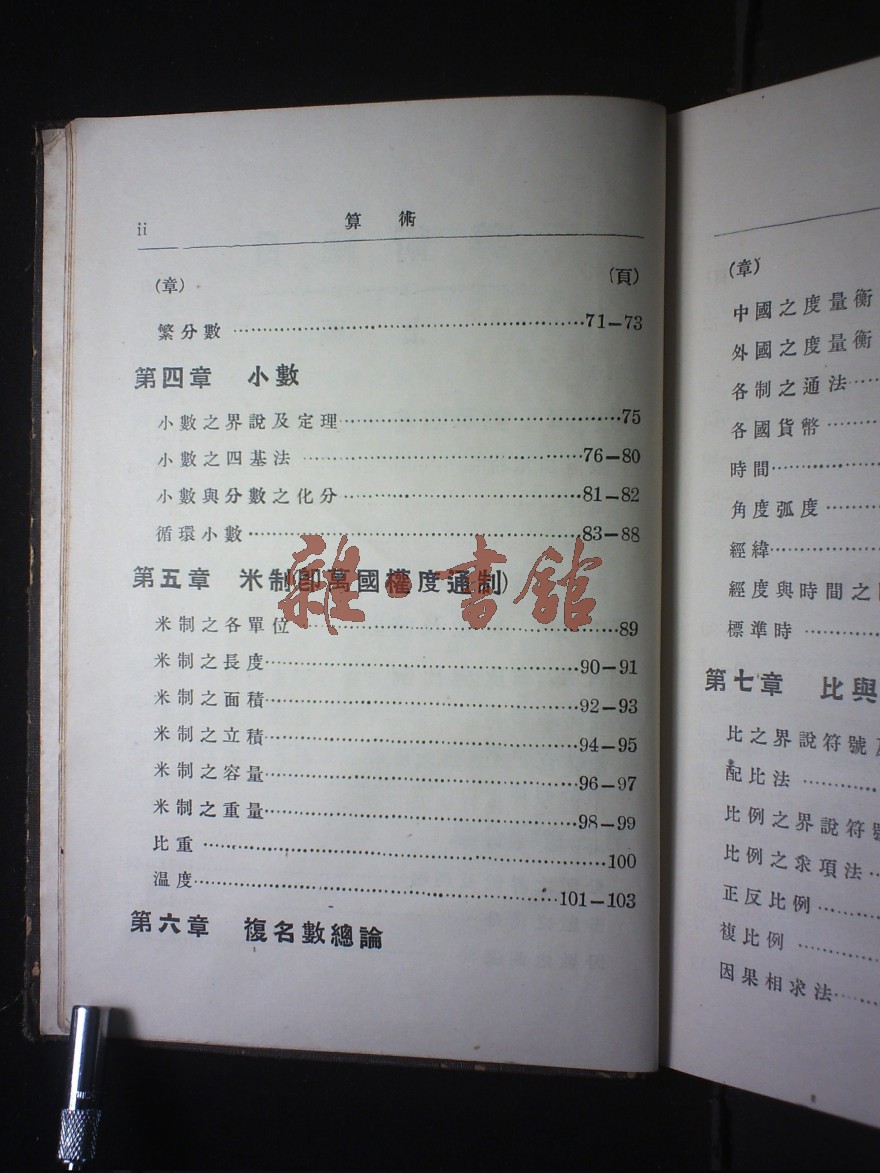 ii 算術
(章) (頁)
繁分數 ……71–73
第四章 小數
小數之界說及定理……75
小數之四基法 ……76–80
小數與分數之化分……81–82
循環小數……83–88
第五章 米制(卽萬國權度通制)
米制之各單位 ……89
米制之長度……90–91
米制之面積……92–93
米制之立積……94–95
米制之容量……96–97
米制之重量……98–99
比重 ……100
温度……101–103
第六章 複名數總論
雜·書館
(章)
中國之度量衡
外國之度量衡
各制之通法……
各國貨幣……
時間……
角度弧度……
經緯……
經度與時間之
標準時……
第七章 比與
比之界說符號
配比法……
比例之界說符號
比例之求項法……
正反比例……
複比例……
因果相求法……